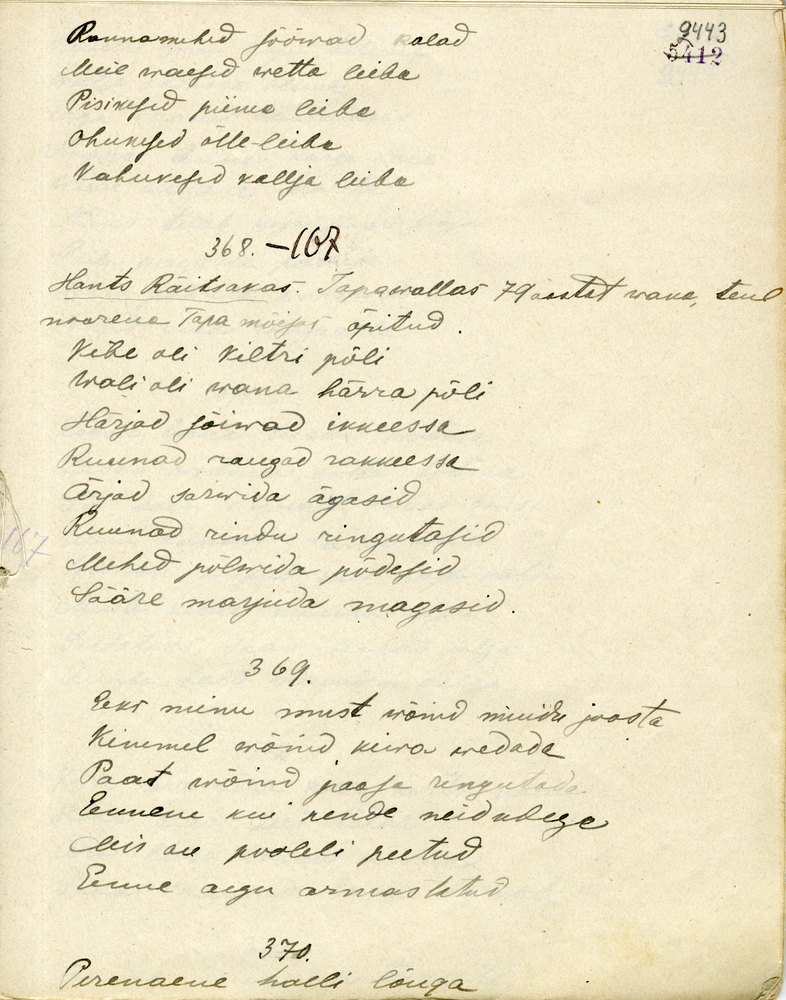 9443
5412
Rannamehed söövad kalad
Meil waesed wetta leiba
Pisikesed piima leiba
Ohukesed õlle-leiba
Kahukesed kallja leiba
368. -167
Hants Räitsakas. Tapawallas 79 aastat wana, teul
noorena Tapa mõisas õpitud.
Kibe oli kiltri põli
Wali oli wana härra põli
Härjad sõiwad ikkeessa
Ruunad raugad rakkeessa
Ärjad sarwida ägasid
Ruunad rindu ringutasid
167
Mehed põlwida põdesid
Sääre marjuda magasid.
369.
Eks minu must wõind muidu joosta
Kimmel wõind keiwa wedada
Paat wõind paasa ringutada
Ennene kui nende neidudega
Mis on pooleli peetud
Enne aegu armastatud
370.
Perenaene halli lõuga